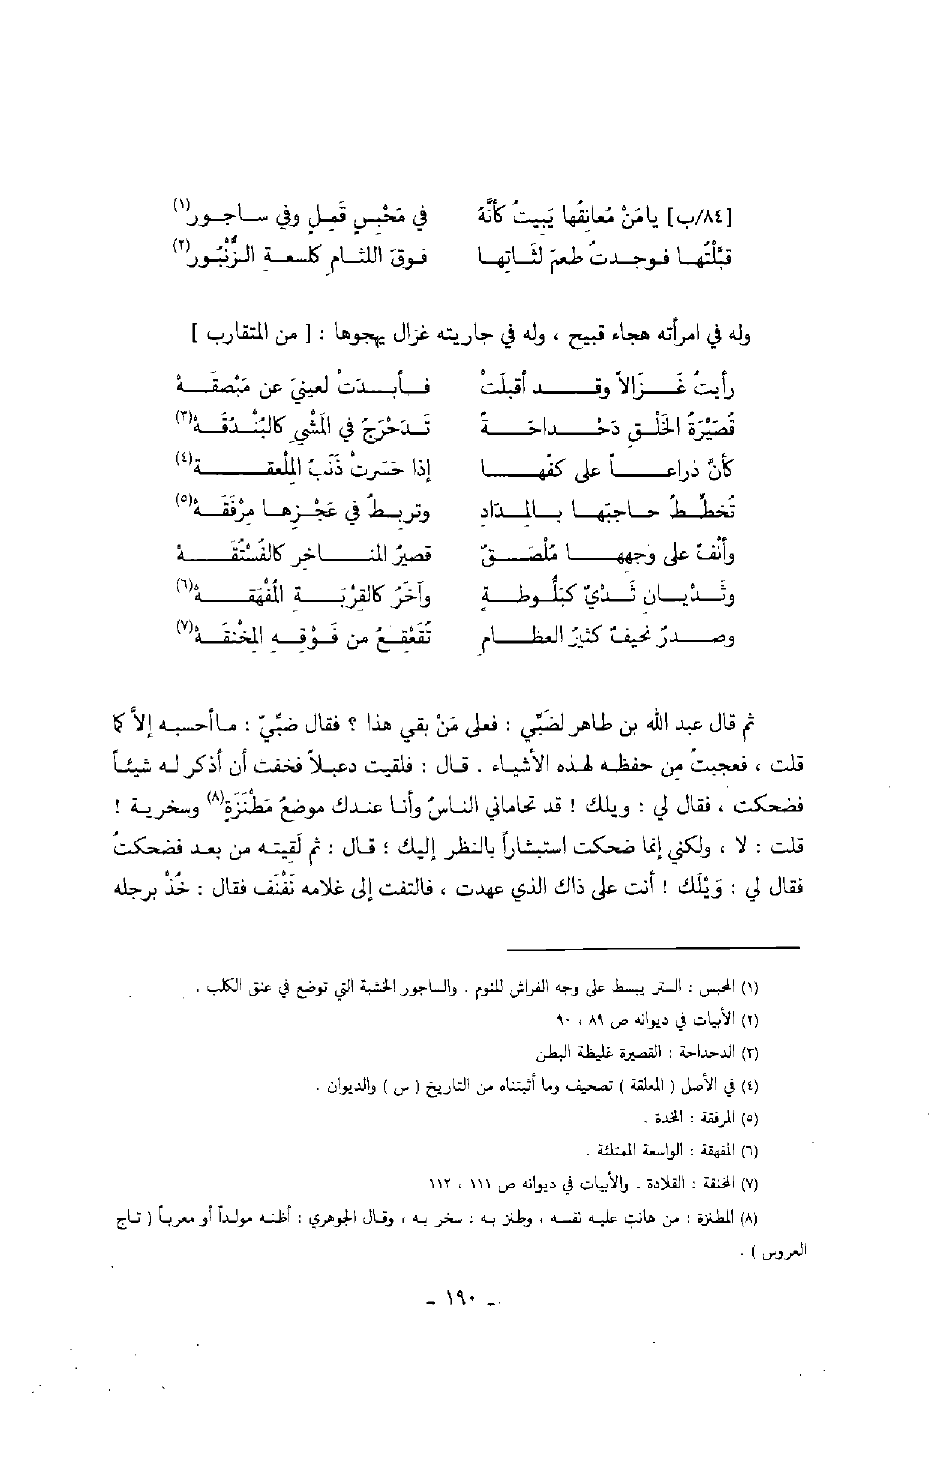 [٨٤/ب] يا مَنْ مُعانِقُها يَبيتُ كأنَّهُ في مَحْبِسٍ قَمِلٍ وفي ساجور(١)
قبَّلْتُها فوجدتُ طعمَ لثاتِها فوقَ اللثامِ كلسعةِ الزُّنْبُور(٢)
وله في امرأته هجاء قبيح ، وله في جاريته غزال يهجوها : [ من المتقارب ]
رأيتُ غَزالاً وقد أقبلَتْ فأبدَتْ لعينيَ عن مَبْصقَهْ
قُصَيِّرَةُ الخَلْقِ دَحْداحَةٌ تَدَحْرَجُ في المَشْيِ كالبُنْدُقَهْ(٣)
كأنّ ذراعاً على كفّها إذا حَسَرتْ ذَنَبُ المِلْعقَهْ(٤)
تُخطِّطُ حاجبَها بالمِدَاد وتربِطُ في عَجْزِها مِرْفَقَهْ(٥)
وأنفٌ على وجهها مُلْصَقٌ قصيرُ المناخِرِ كالفُسْتُقَهْ
وثَدْيانِ ثَدْيٌ كبَلُّوطةٍ وآخَرُ كالقِرْبَةِ المُفْهَقَهْ(٦)
وصدرٌ نحيفٌ كثيرُ العظامِ تُقَعْقِعُ من فَوْقِهِ المِخْنقَهْ(٧)
ثم قال عبد الله بن طاهر لضَبِّي : فعلى مَنْ بقي هذا ؟ فقال ضبِّيّ : ماأحسبه إلاّ كما
قلت ، فعجبتُ من حفظه لهذه الأشياء . قال : فلقيت دعبلاً فخفت أن أذكر له شيئاً
فضحكت ، فقال لي : ويلك ! قد تحاماني الناسُ وأنا عندك موضعُ مَطْنَزَةٍ(٨) وسخرية !
قلت : لا ، ولكني إنما ضحكت استبشاراً بالنظر إليك ؛ قال : ثم لَقِيتِه من بعد فضحكتُ
فقال لي : وَيْلَك ! أنت على ذاك الذي عهدت ، فالتفت إلى غلامه نَفْنَف فقال : خُذْ برجله
(١) المحبس : الستر يبسط على وجه الفراش للنوم . والساجور الخشبة التي توضع في عنق الكلب .
(٢) الأبيات في ديوانه ص ٨٩ ، ٩٠
(٣) الدحداحة : القصيرة غليظة البطن
(٤) في الأصل ( المعلقة ) تصحيف وما أثبتناه من التاريخ ( س ) والديوان .
(٥) المرفقة : المخدة .
(٦) المفهقة : الواسعة الممتلئة .
(٧) المخنقة : القلادة . والأبيات في ديوانه ص ١١١ ، ١١٢
(٨) المطنزة : من هانت عليه نفسه ، وطنز به : سخر به ، وقال الجوهري : أظنه مولداً أو معرباً ( تاج
العروس ) .
- ١٩٠ -